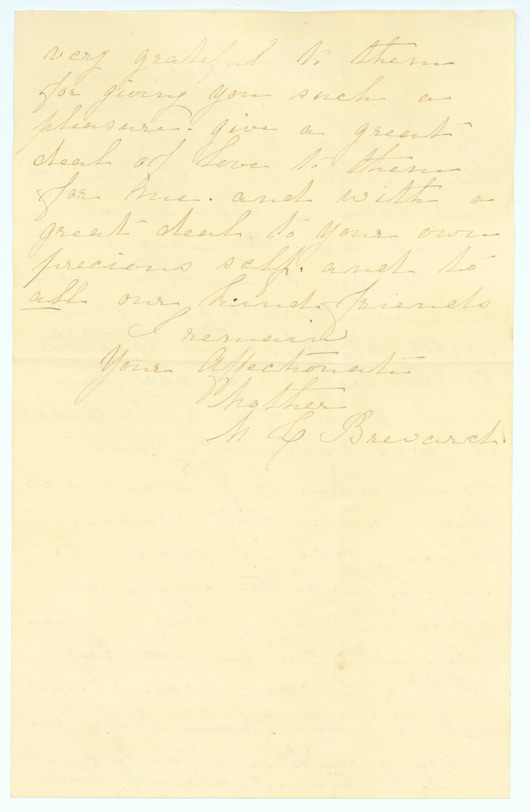 very grateful to them
for giving you such a
pleasure. give a great
deal of Love to them
for me. and with a
great deal to your own
precious self. and to
all our kind friends
I remain
Your Affectionate
Mother
M C Brevard.